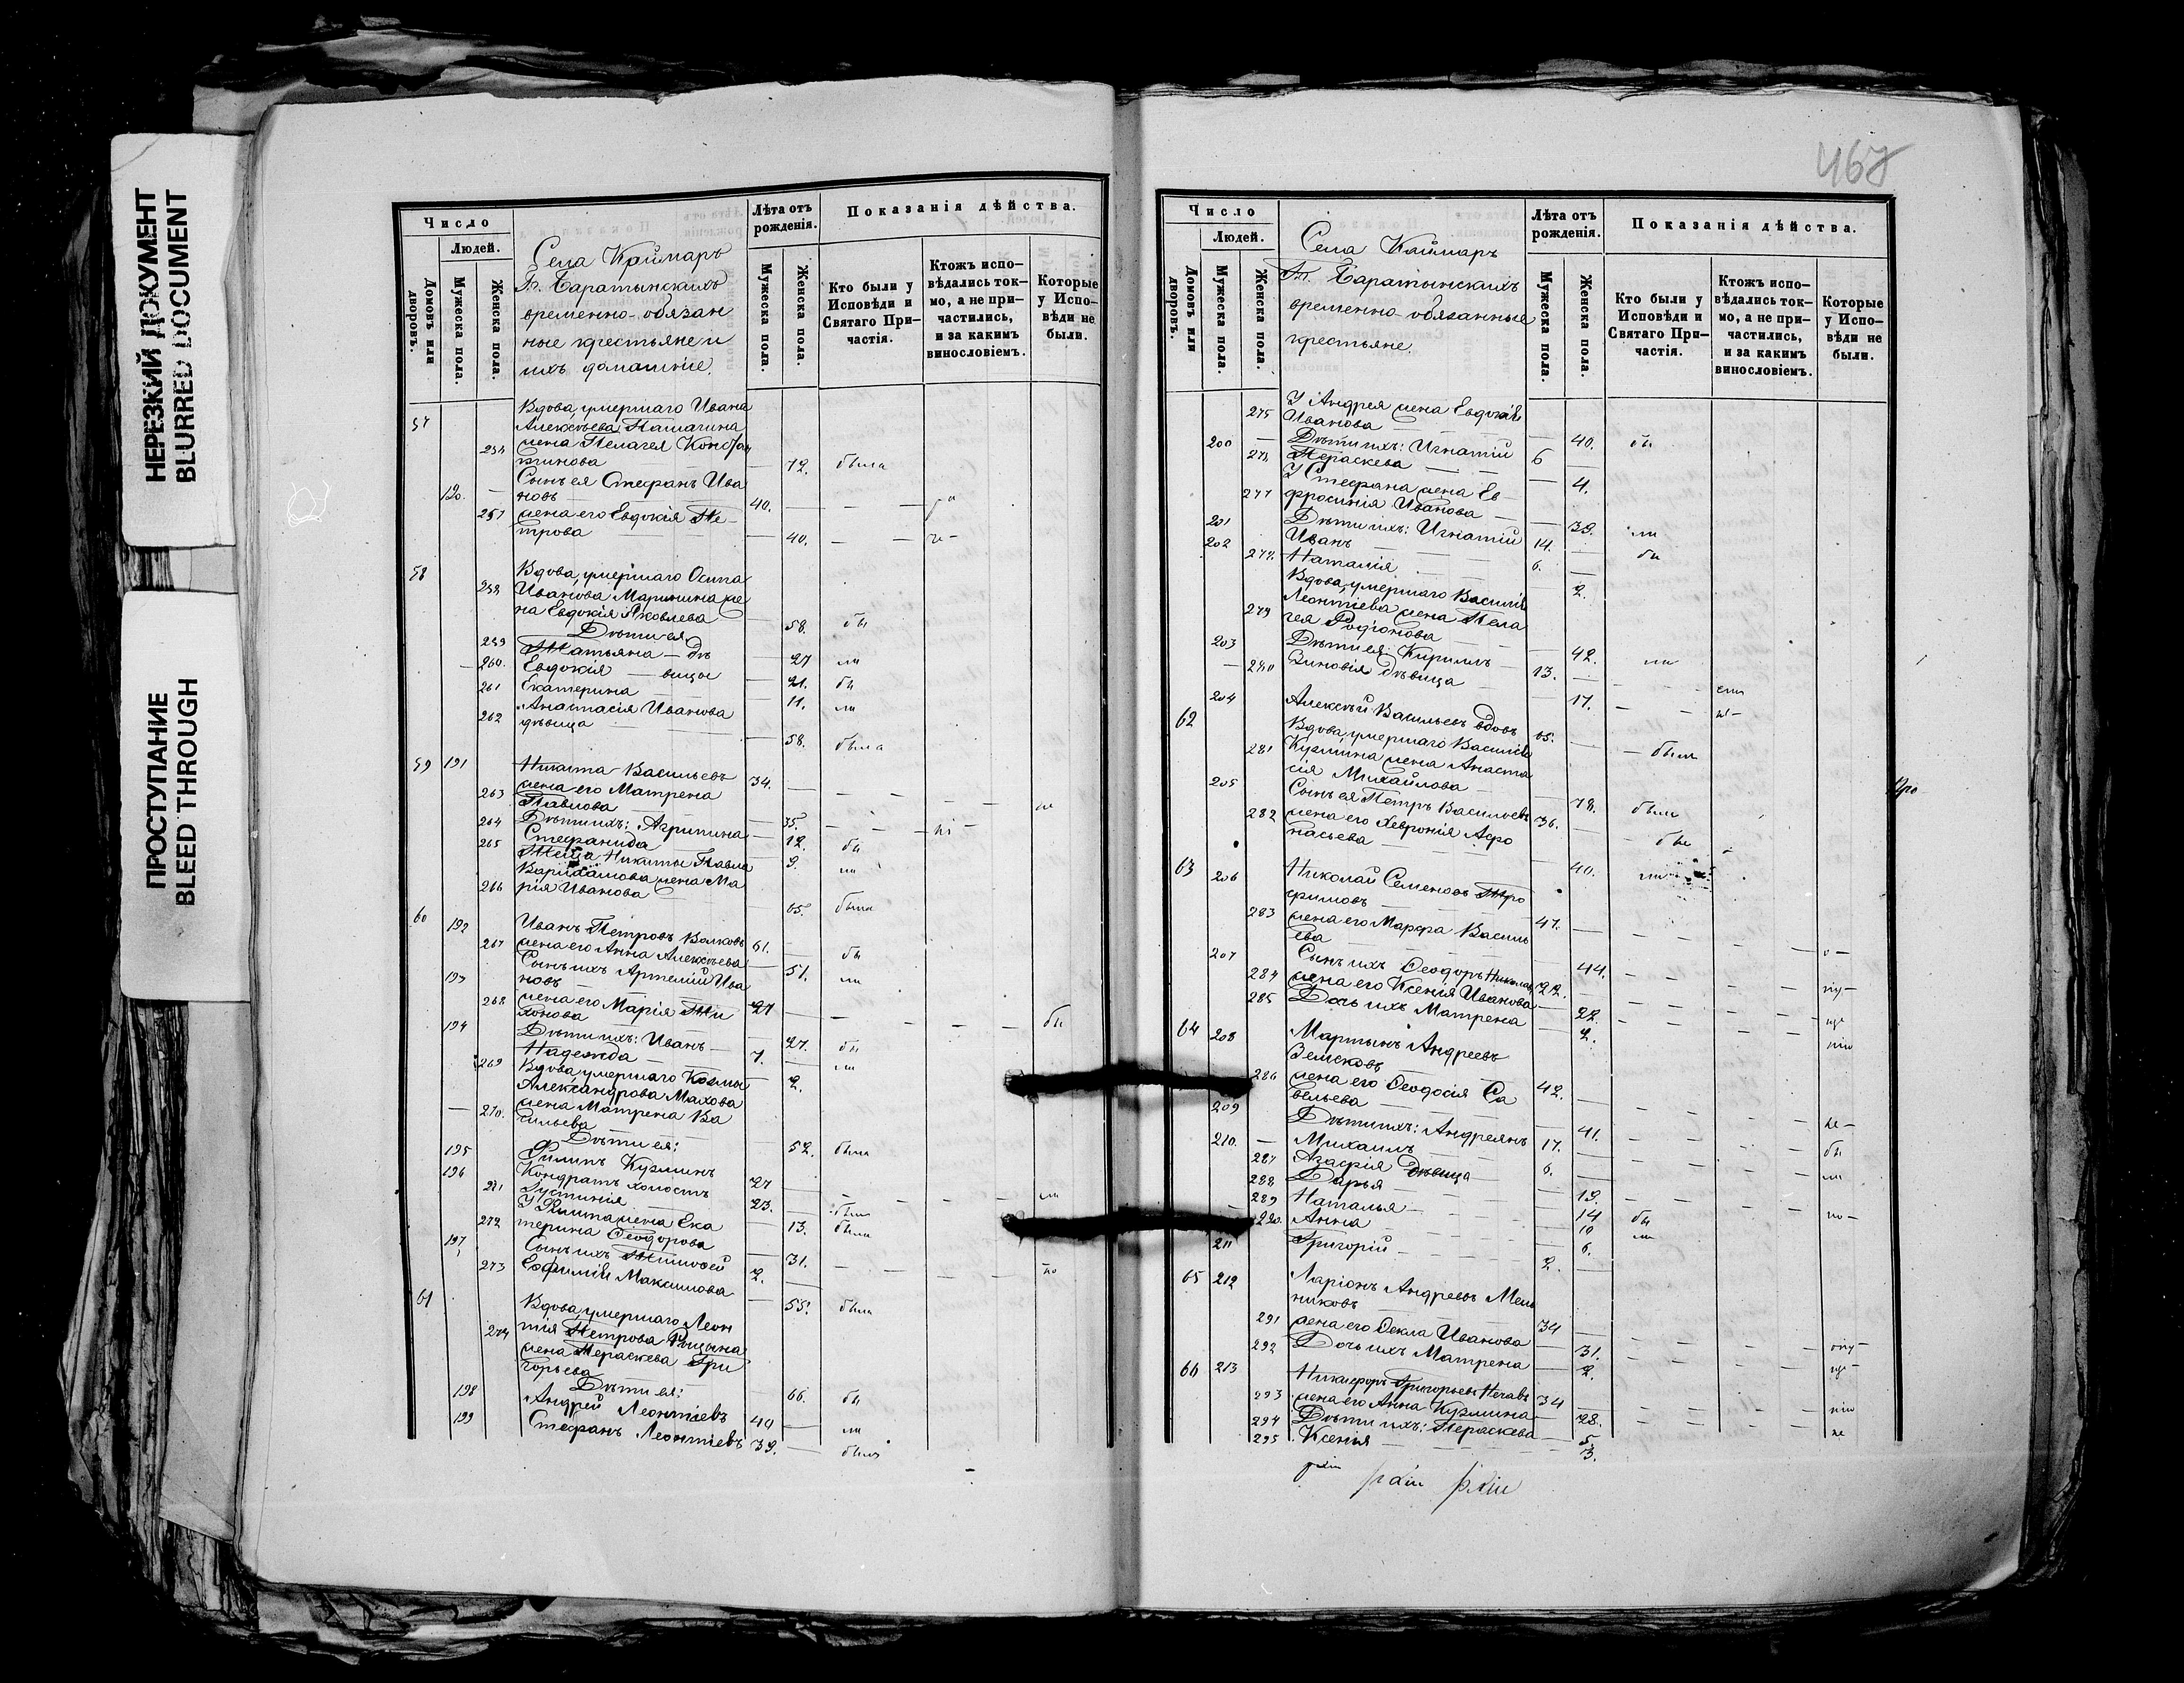 НЕРЕЗКИЙ ДОКУМЕНТ
BLURRED DOCUMENT
ПРОСТУПАНИЕ
BLEED THROUGH
Число
Людей.
Домовъ или дворовъ.
Мужеска пола.
Женска пола.
Села Каймаръ
Гг. Баратынскихъ
временно-обязан
ные крестьяне и
ихъ домашніе.
Лѣта отъ рожденія.
Мужеска пола.
Женска пола.
Показанія дѣйства.
Кто были у Исповѣди и Святаго При-
частія.
Ктожъ испо-
вѣдались ток-
мо, а не при-
частились,
и за какимъ
винословіемъ.
Которые
у Испо-
вѣди не
были.
57 Вдова, умершаго Ивана
Алексѣева
жена Пелагея Констан
тинова 72. была
Сынъ ея Стефанъ Ива
новъ 40.
257 жена его Евдокія Пе-
трова 40.
58 Вдова, умершаго Осипа
258 Иванова Маринина же
на Евдокія Яковлева 58. бы
Дѣти ея
259 Татьяна — дѣ 27 ли
260. Евдокія — вицы 21. бы
261 Екатерина 11. ли
Анастасія Иванова
262 дѣвица 58. была
59 191 Никита Васильевъ 34.
жена его Матрена
263 Павлова 35.
264 Дѣти ихъ: Агрипина 12. бы
265 Стефанида 9. ли
Теща Никиты Павла
Варламова жена Ма
266 рія Иванова 65. была
60 192 Иванъ Петровъ Волковъ 61. бы
267 жена его Анна Алексѣева 57. ли
Сынъ ихъ Артемій Ива
193 новъ 27
268 жена его Марія Ти
хонова 27. бы
194 Дѣти ихъ: Иванъ 7. ли
269 Надежда 2.
Вдова, умершаго Козмы
Александрова Махова
270. жена Матрена Ва
сильева 52. была
Дѣти ея:
195 Филипъ Кузминъ 27
196 Кондратъ холостъ 23. были
271 Іустинія 13. была
У Филипа жена Ека
272 терина Ѳеодорова 31.
197 Сынъ ихъ Тимоѳей 2.
273 Евфимія Максимова 55. была
61 Вдова, умершаго Леон
тія Петрова
274 жена Пераскева Гри
горьева 66. бы
Дѣти ея:
198 Андрей Леонтіевъ 40 ли
199 Стефанъ Леонтіевъ 39. были
467
Число
Людей.
Домовъ или дворовъ.
Мужеска пола.
Женска пола.
Села Каймаръ
Гг. Баратынскихъ
временно-обязанные
крестьяне.
Лѣта отъ рожденія.
Мужеска пола.
Женска пола.
Показанія дѣйства.
Кто были у Исповѣди и Святаго При-
частія.
Ктожъ испо-
вѣдались ток-
мо, а не при-
частились,
и за какимъ
винословіемъ.
Которые
у Испо-
вѣди не
были.
275 У Андрея жена Евдокія
Иванова 40. бы
200 Дѣти ихъ: Игнатій 6
276 Пераскева 4.
У Стефана жена Ев-
277 фросинія Иванова 39. ли
201 Дѣти ихъ: Игнатій 14. бы
202 Иванъ 6.
278 Наталія 2.
Вдова, умершаго Василія
Леонтіева жена Пела
279 гея Родіонова 42. ли
203 Дѣти ея: Кирилъ 13.
280 Зиновія дѣвица 17.
204 Алексѣй Васильевъ вдовъ 65. были
62 Вдова, умершаго Василія
281 Кузмина жена Анаста
сія Михайлова 78. была
205 Сынъ ея Петръ Васильевъ 36. бы
282 жена его Хевронія Афо
насьева 40. ли
63 206 Николай Семеновъ Тро
фимовъ 47.
283 жена его Марѳа Василь
ева 44.
207 Сынъ ихъ Ѳеодоръ Николаев 22.
284 жена его Ксенія Иванова 22.
285 Дочь ихъ Матрена 2.
64 208 Мартынъ Андреевъ
Земсковъ 42.
286 жена его Ѳеодосія Са
вельева 41.
209 Дѣти ихъ: Андреянъ 17. бы
210. Михаилъ 6. ли
287 Агафія дѣвица 19.
288 Дарья 14 бы
289 Наталья 10 ли
290. Анна 6.
211 Григорій 2.
65 212 Ларіонъ Андреевъ Мель
никовъ 34
291 жена его Ѳекла Иванова 31.
292 Дочь ихъ Матрена 2.
66 213 Никифоръ Григорьевъ 34
293 жена его Анна Кузмина 28.
294 Дѣти ихъ: Пераскева 5.
295 Ксенія 3.